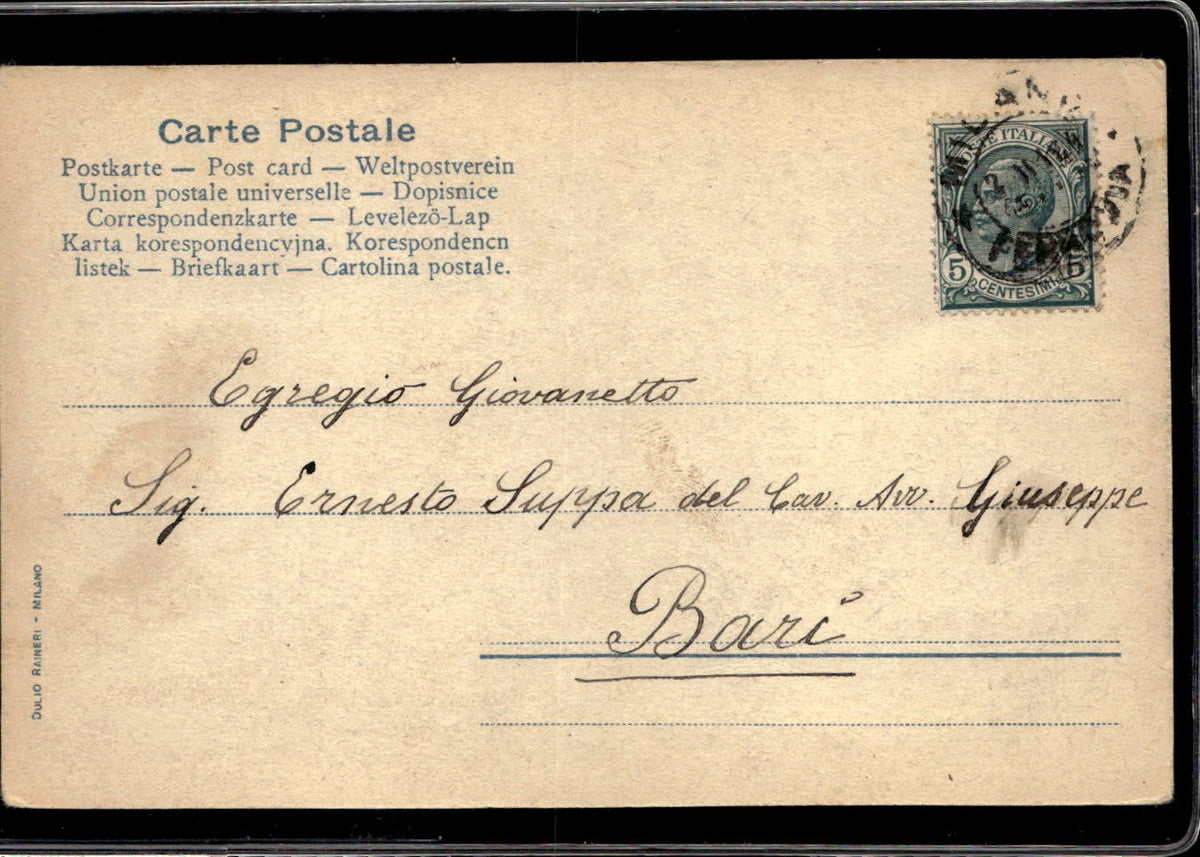 Carte Postale
Postkarte — Post card — Weltpostverein
Union postale universelle — Dopisnice
Correspondenzkarte — Levelezö-Lap
Karta korespondencyjna. Korespondencn
listek — Briefkaart — Cartolina postale.
POSTE ITALIANE
5 CENTESIMI 5
MILANO
FERROVIA
Egregio Giovanetto
Sig. Ernesto Suppa del Cav. Avv. Giuseppe
Bari
DULIO RAINERI - MILANO